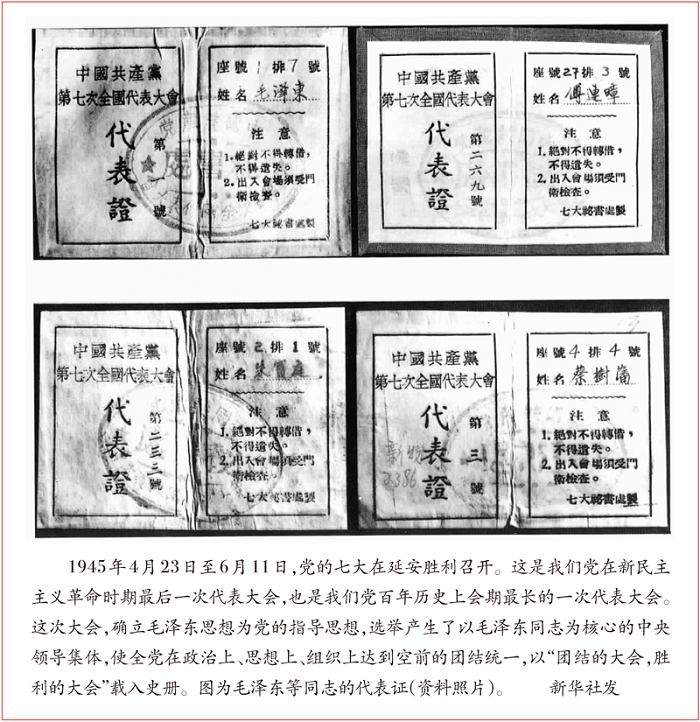 中國共產黨
第七次全國代表大會
代表證
第 號
座號1排7號
姓名 毛澤東
注意
1.絕對不得轉借，
不得遺失。
2.出入會場須受門
衛檢查。
七大祕書處製
中國共產黨
第七次全國代表大會
代表證
第二六九號
座號27排3號
姓名 傅連暲
注意
1.絕對不得轉借，
不得遺失。
2.出入會場須受門
衛檢查。
七大祕書處製
中國共產黨
第七次全國代表大會
代表證
第二三三號
座號2排1號
姓名
注意
1.絕對不得轉借，
不得遺失。
2.出入會場須受門
衛檢查。
七大祕書處製
中國共產黨
第七次全國代表大會
代表證
第三號
座號4排4號
姓名 蔡樹藩
注意
1.絕對不得轉借，
不得遺失。
2.出入會場須受門
衛檢查。
七大祕書處製
1945年4月23日至6月11日，党的七大在延安胜利召开。这是我们党在新民主
主义革命时期最后一次代表大会，也是我们党百年历史上会期最长的一次代表大会。
这次大会，确立毛泽东思想为党的指导思想，选举产生了以毛泽东同志为核心的中央
领导集体，使全党在政治上、思想上、组织上达到空前的团结统一，以“团结的大会，胜
利的大会”载入史册。图为毛泽东等同志的代表证（资料照片）。 新华社发